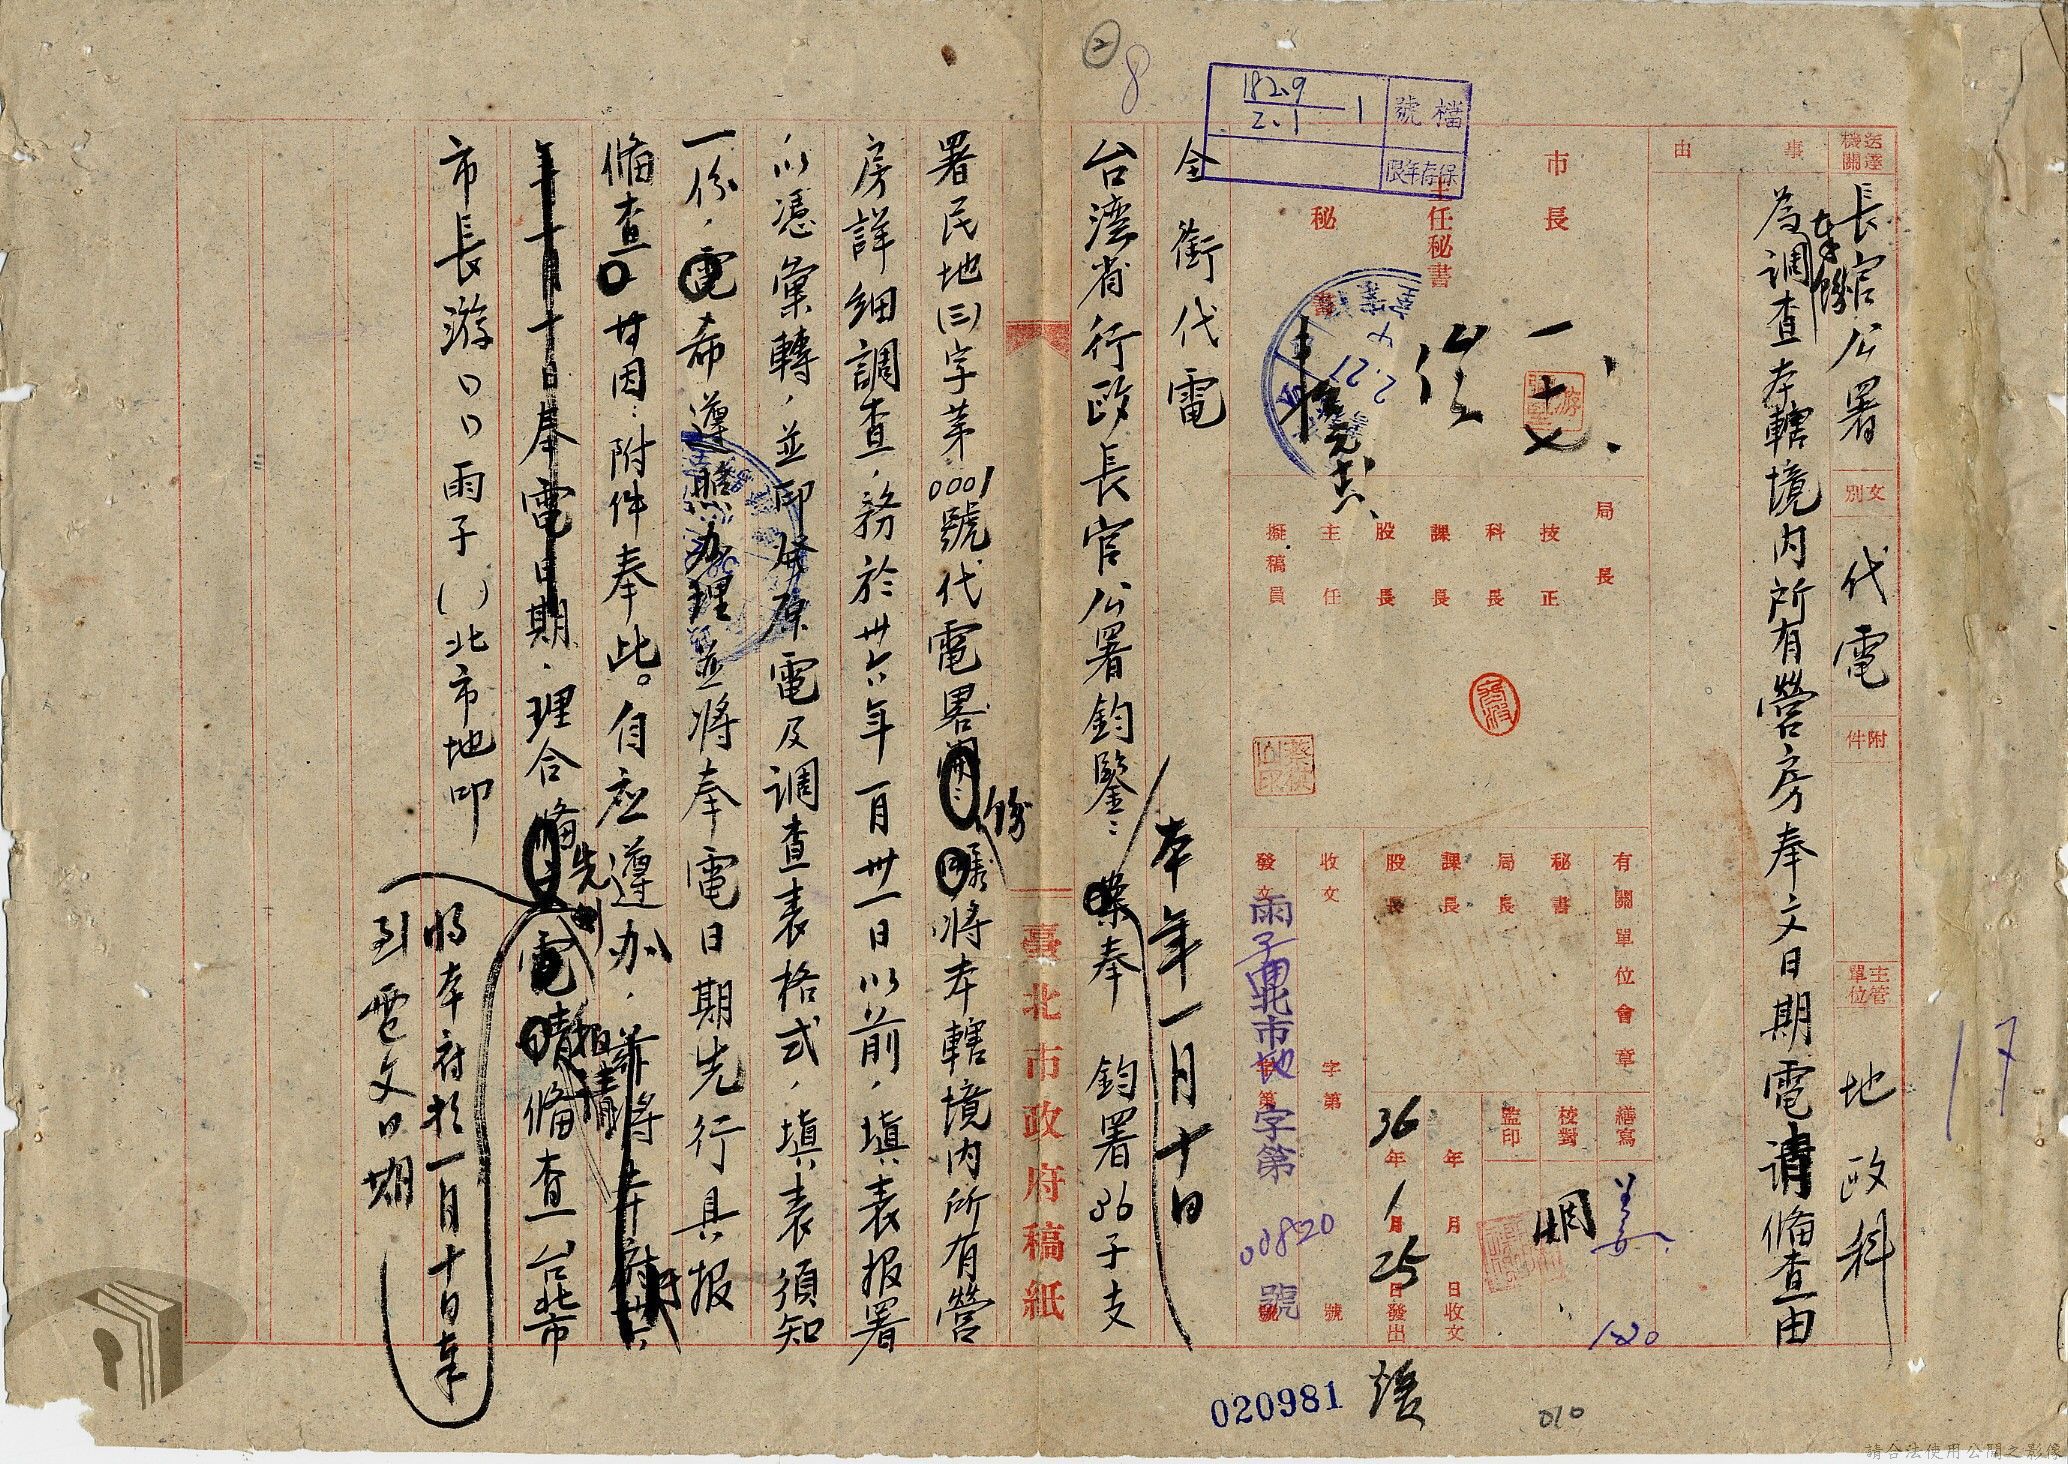 送達機關
長官公署
文別
代電
附件
主管單位
地政科
事由
為調查本轄境內所有營房奉文日期電請備查由
奉飭
市長
主任秘書
秘書
局長
技正
科長
課長
股長
主任
擬稿員
有關單位會章
秘書
局長
課長
股長
繕寫
校對
監印
姜
1.20
年 月 日收文
36年1月25日發出
收文 字第 號
發文 字第 號
雨子 北市地字第00820號
檔號
182.9
2.1
1
保存年限
2
8
17
全銜代電
本年一月十日
台灣省行政長官公署鈞鑒：案奉 鈞署36子支
署民地(三)字第0001號代電畧
飭
將本轄境內所有營
房詳細調查，務於卅六年一月卅一日以前，填表报署
以憑彙轉，並印發原電及調查表格式，填表須知
一份，電希遵照办理並將奉電日期先行具报
備查 廿因：附件奉此。自应遵办，
將本府卅六
年一月十日奉電日期，理合
備
先
電
报請
備查 台北市
市長游 雨子( )北市地印
將本府於一月十日奉
到電文日期
臺北市政府稿紙
020981
010
請合法使用公開之影像